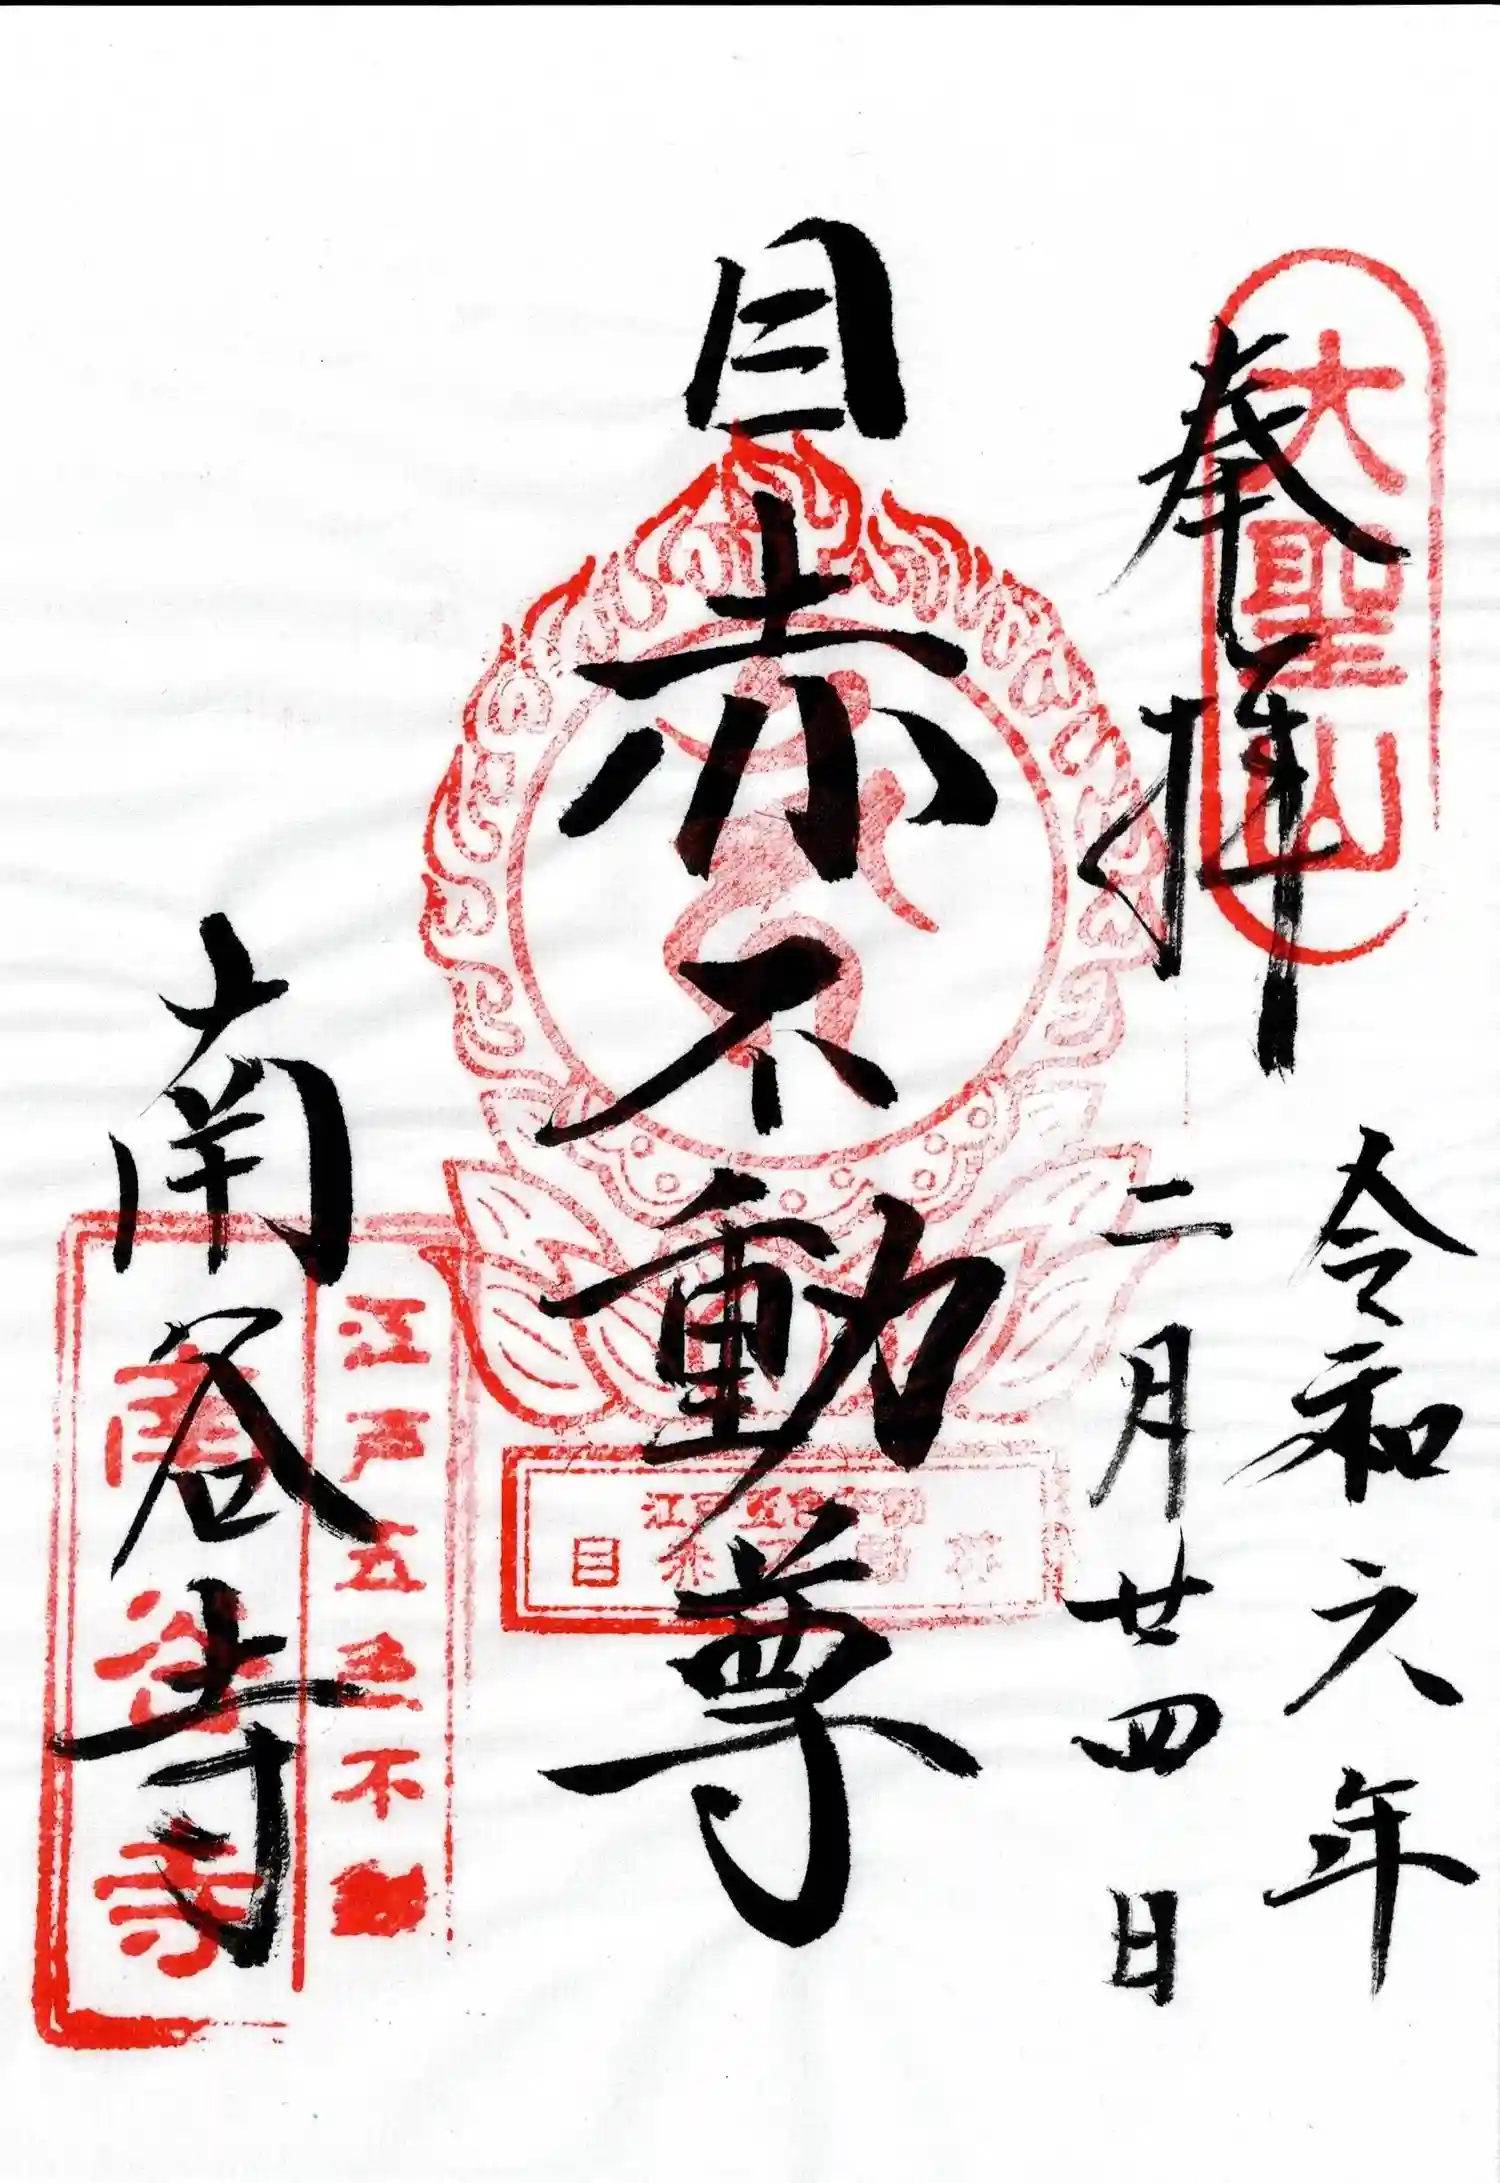 大聖山
奉拝
令和六年
二月廿四日
目赤不動尊
江戸五色不動
目赤不動尊
南谷寺
江戸五色不動
南谷寺